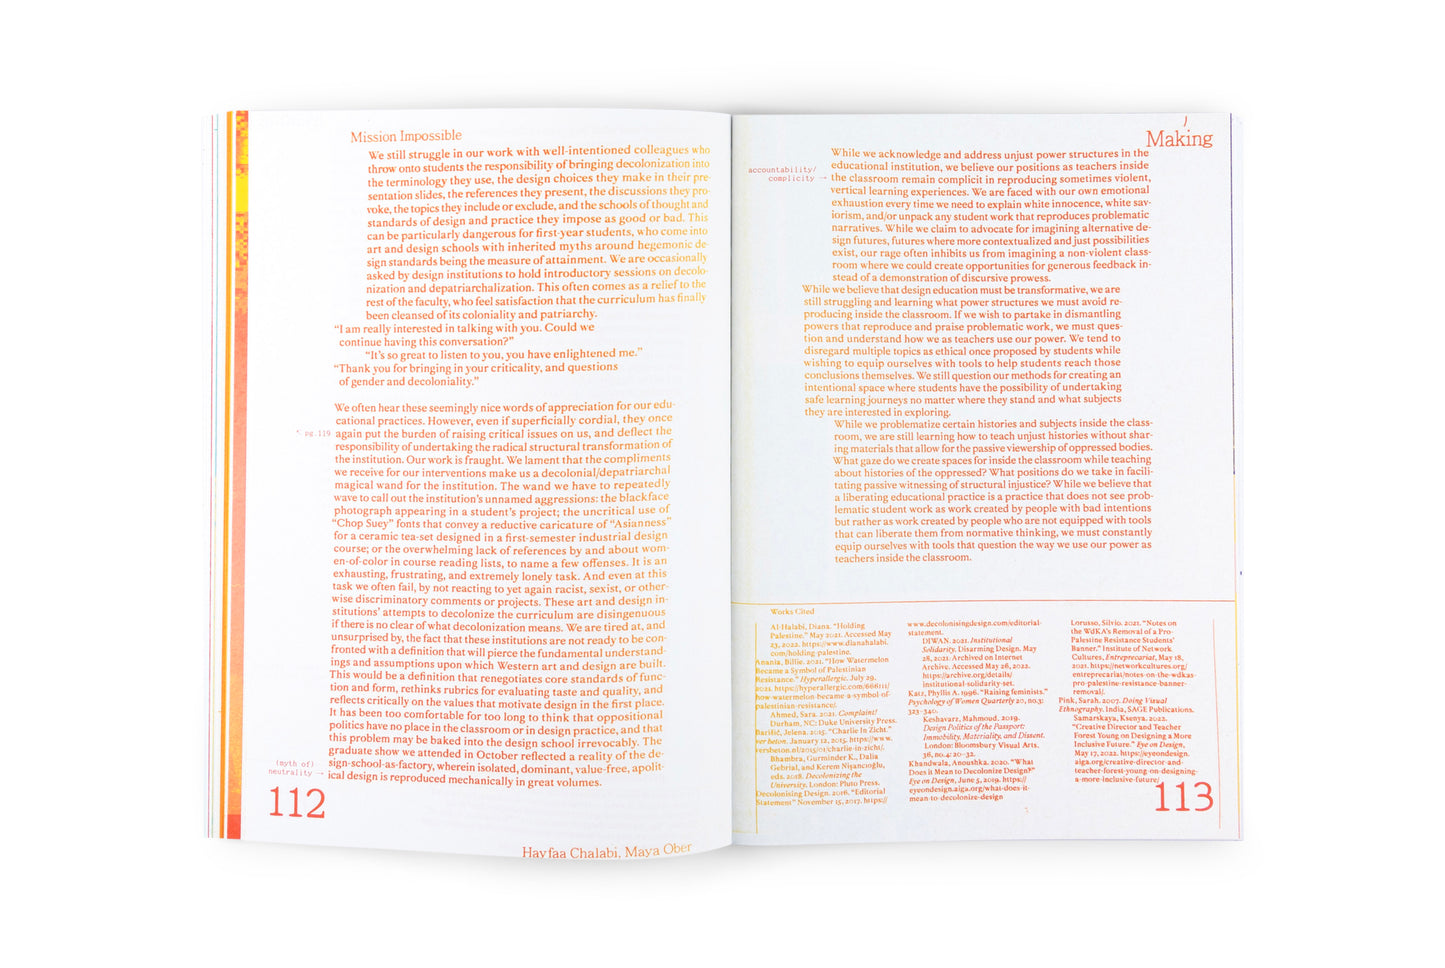 Mission Impossible
We still struggle in our work with well-intentioned colleagues who
throw onto students the responsibility of bringing decolonization into
the terminology they use, the design choices they make in their pre-
sentation slides, the references they present, the discussions they pro-
voke, the topics they include or exclude, and the schools of thought and
standards of design and practice they impose as good or bad. This
can be particularly dangerous for first-year students, who come into
art and design schools with inherited myths around hegemonic de-
sign standards being the measure of attainment. We are occasionally
asked by design institutions to hold introductory sessions on decolo-
nization and depatriarchalization. This often comes as a relief to the
rest of the faculty, who feel satisfaction that the curriculum has finally
been cleansed of its coloniality and patriarchy.
“I am really interested in talking with you. Could we
continue having this conversation?”
“It’s so great to listen to you, you have enlightened me.”
“Thank you for bringing in your criticality, and questions
of gender and decoloniality.”
We often hear these seemingly nice words of appreciation for our edu-
cational practices. However, even if superficially cordial, they once
↖ pg.119 again put the burden of raising critical issues on us, and deflect the
responsibility of undertaking the radical structural transformation of
the institution. Our work is fraught. We lament that the compliments
we receive for our interventions make us a decolonial/depatriarchal
magical wand for the institution. The wand we have to repeatedly
wave to call out the institution’s unnamed aggressions: the blackface
photograph appearing in a student’s project; the uncritical use of
“Chop Suey” fonts that convey a reductive caricature of “Asianness”
for a ceramic tea-set designed in a first-semester industrial design
course; or the overwhelming lack of references by and about wom-
en-of-color in course reading lists, to name a few offenses. It is an
exhausting, frustrating, and extremely lonely task. And even at this
task we often fail, by not reacting to yet again racist, sexist, or other-
wise discriminatory comments or projects. These art and design in-
stitutions’ attempts to decolonize the curriculum are disingenuous
if there is no clear of what decolonization means. We are tired at, and
unsurprised by, the fact that these institutions are not ready to be con-
fronted with a definition that will pierce the fundamental understand-
ings and assumptions upon which Western art and design are built.
This would be a definition that renegotiates core standards of func-
tion and form, rethinks rubrics for evaluating taste and quality, and
reflects critically on the values that motivate design in the first place.
It has been too comfortable for too long to think that oppositional
politics have no place in the classroom or in design practice, and that
this problem may be baked into the design school irrevocably. The
graduate show we attended in October reflected a reality of the de-
(myth of) sign-school-as-factory, wherein isolated, dominant, value-free, apolit-
neutrality → ical design is reproduced mechanically in great volumes.
112
Hayfaa Chalabi, Maya Ober
Making
While we acknowledge and address unjust power structures in the
accountability/ educational institution, we believe our positions as teachers inside
complicity → the classroom remain complicit in reproducing sometimes violent,
vertical learning experiences. We are faced with our own emotional
exhaustion every time we need to explain white innocence, white sav-
iorism, and/or unpack any student work that reproduces problematic
narratives. While we claim to advocate for imagining alternative de-
sign futures, futures where more contextualized and just possibilities
exist, our rage often inhibits us from imagining a non-violent class-
room where we could create opportunities for generous feedback in-
stead of a demonstration of discursive prowess.
While we believe that design education must be transformative, we are
still struggling and learning what power structures we must avoid re-
producing inside the classroom. If we wish to partake in dismantling
powers that reproduce and praise problematic work, we must ques-
tion and understand how we as teachers use our power. We tend to
disregard multiple topics as ethical once proposed by students while
wishing to equip ourselves with tools to help students reach those
conclusions themselves. We still question our methods for creating an
intentional space where students have the possibility of undertaking
safe learning journeys no matter where they stand and what subjects
they are interested in exploring.
While we problematize certain histories and subjects inside the class-
room, we are still learning how to teach unjust histories without shar-
ing materials that allow for the passive viewership of oppressed bodies.
What gaze do we create spaces for inside the classroom while teaching
about histories of the oppressed? What positions do we take in facili-
tating passive witnessing of structural injustice? While we believe that
a liberating educational practice is a practice that does not see prob-
lematic student work as work created by people with bad intentions
but rather as work created by people who are not equipped with tools
that can liberate them from normative thinking, we must constantly
equip ourselves with tools that question the way we use our power as
teachers inside the classroom.
Works Cited
Al-Halabi, Diana. “Holding
Palestine.” May 2021. Accessed May
23, 2022. https://www.dianahalabi.
com/holding-palestine.
Anania, Billie. 2021. “How Watermelon
Became a Symbol of Palestinian
Resistance.” Hyperallergic. July 29.
2021. https://hyperallergic.com/666111/
how-watermelon-became-a-symbol-of-
palestinian-resistance/.
Ahmed, Sara. 2021. Complaint!
Durham, NC: Duke University Press.
Barišić, Jelena. 2015. “Charlie In Zicht.”
ver beton. January 12, 2015. https://www.
versbeton.nl/2015/01/charlie-in-zicht/.
Bhambra, Gurminder K., Dalia
Gebrial, and Kerem Nişancıoğlu,
eds. 2018. Decolonizing the
University. London: Pluto Press.
Decolonising Design. 2016. “Editorial
Statement” November 15, 2017. https://
www.decolonisingdesign.com/editorial-
statement.
DIWAN. 2021. Institutional
Solidarity. Disarming Design. May
28, 2021. Archived on Internet
Archive. Accessed May 26, 2022.
https://archive.org/details/
institutional-solidarity-set.
Katz, Phyllis A. 1996. “Raising feminists.”
Psychology of Women Quarterly 20, no.3:
323–340.
Keshavarz, Mahmoud. 2019.
Design Politics of the Passport:
Immobility, Materiality, and Dissent.
London: Bloomsbury Visual Arts.
36, no.4: 20–32.
Khandwala, Anoushka. 2020. “What
Does it Mean to Decolonize Design?”
Eye on Design, June 5, 2019. https://
eyeondesign.aiga.org/what-does-it-
mean-to-decolonize-design
Lorusso, Silvio. 2021. “Notes on
the WdKA’s Removal of a Pro-
Palestine Resistance Students’
Banner.” Institute of Network
Cultures, Entreprecariat, May 18,
2021. https://networkcultures.org/
entreprecariat/notes-on-the-wdkas-
pro-palestine-resistance-banner-
removal/.
Pink, Sarah. 2007. Doing Visual
Ethnography. India, SAGE Publications.
Samarskaya, Ksenya. 2022.
“Creative Director and Teacher
Forest Young on Designing a More
Inclusive Future.” Eye on Design,
May 17, 2022. https://eyeondesign.
aiga.org/creative-director-and-
teacher-forest-young-on-designing-
a-more-inclusive-future/
113